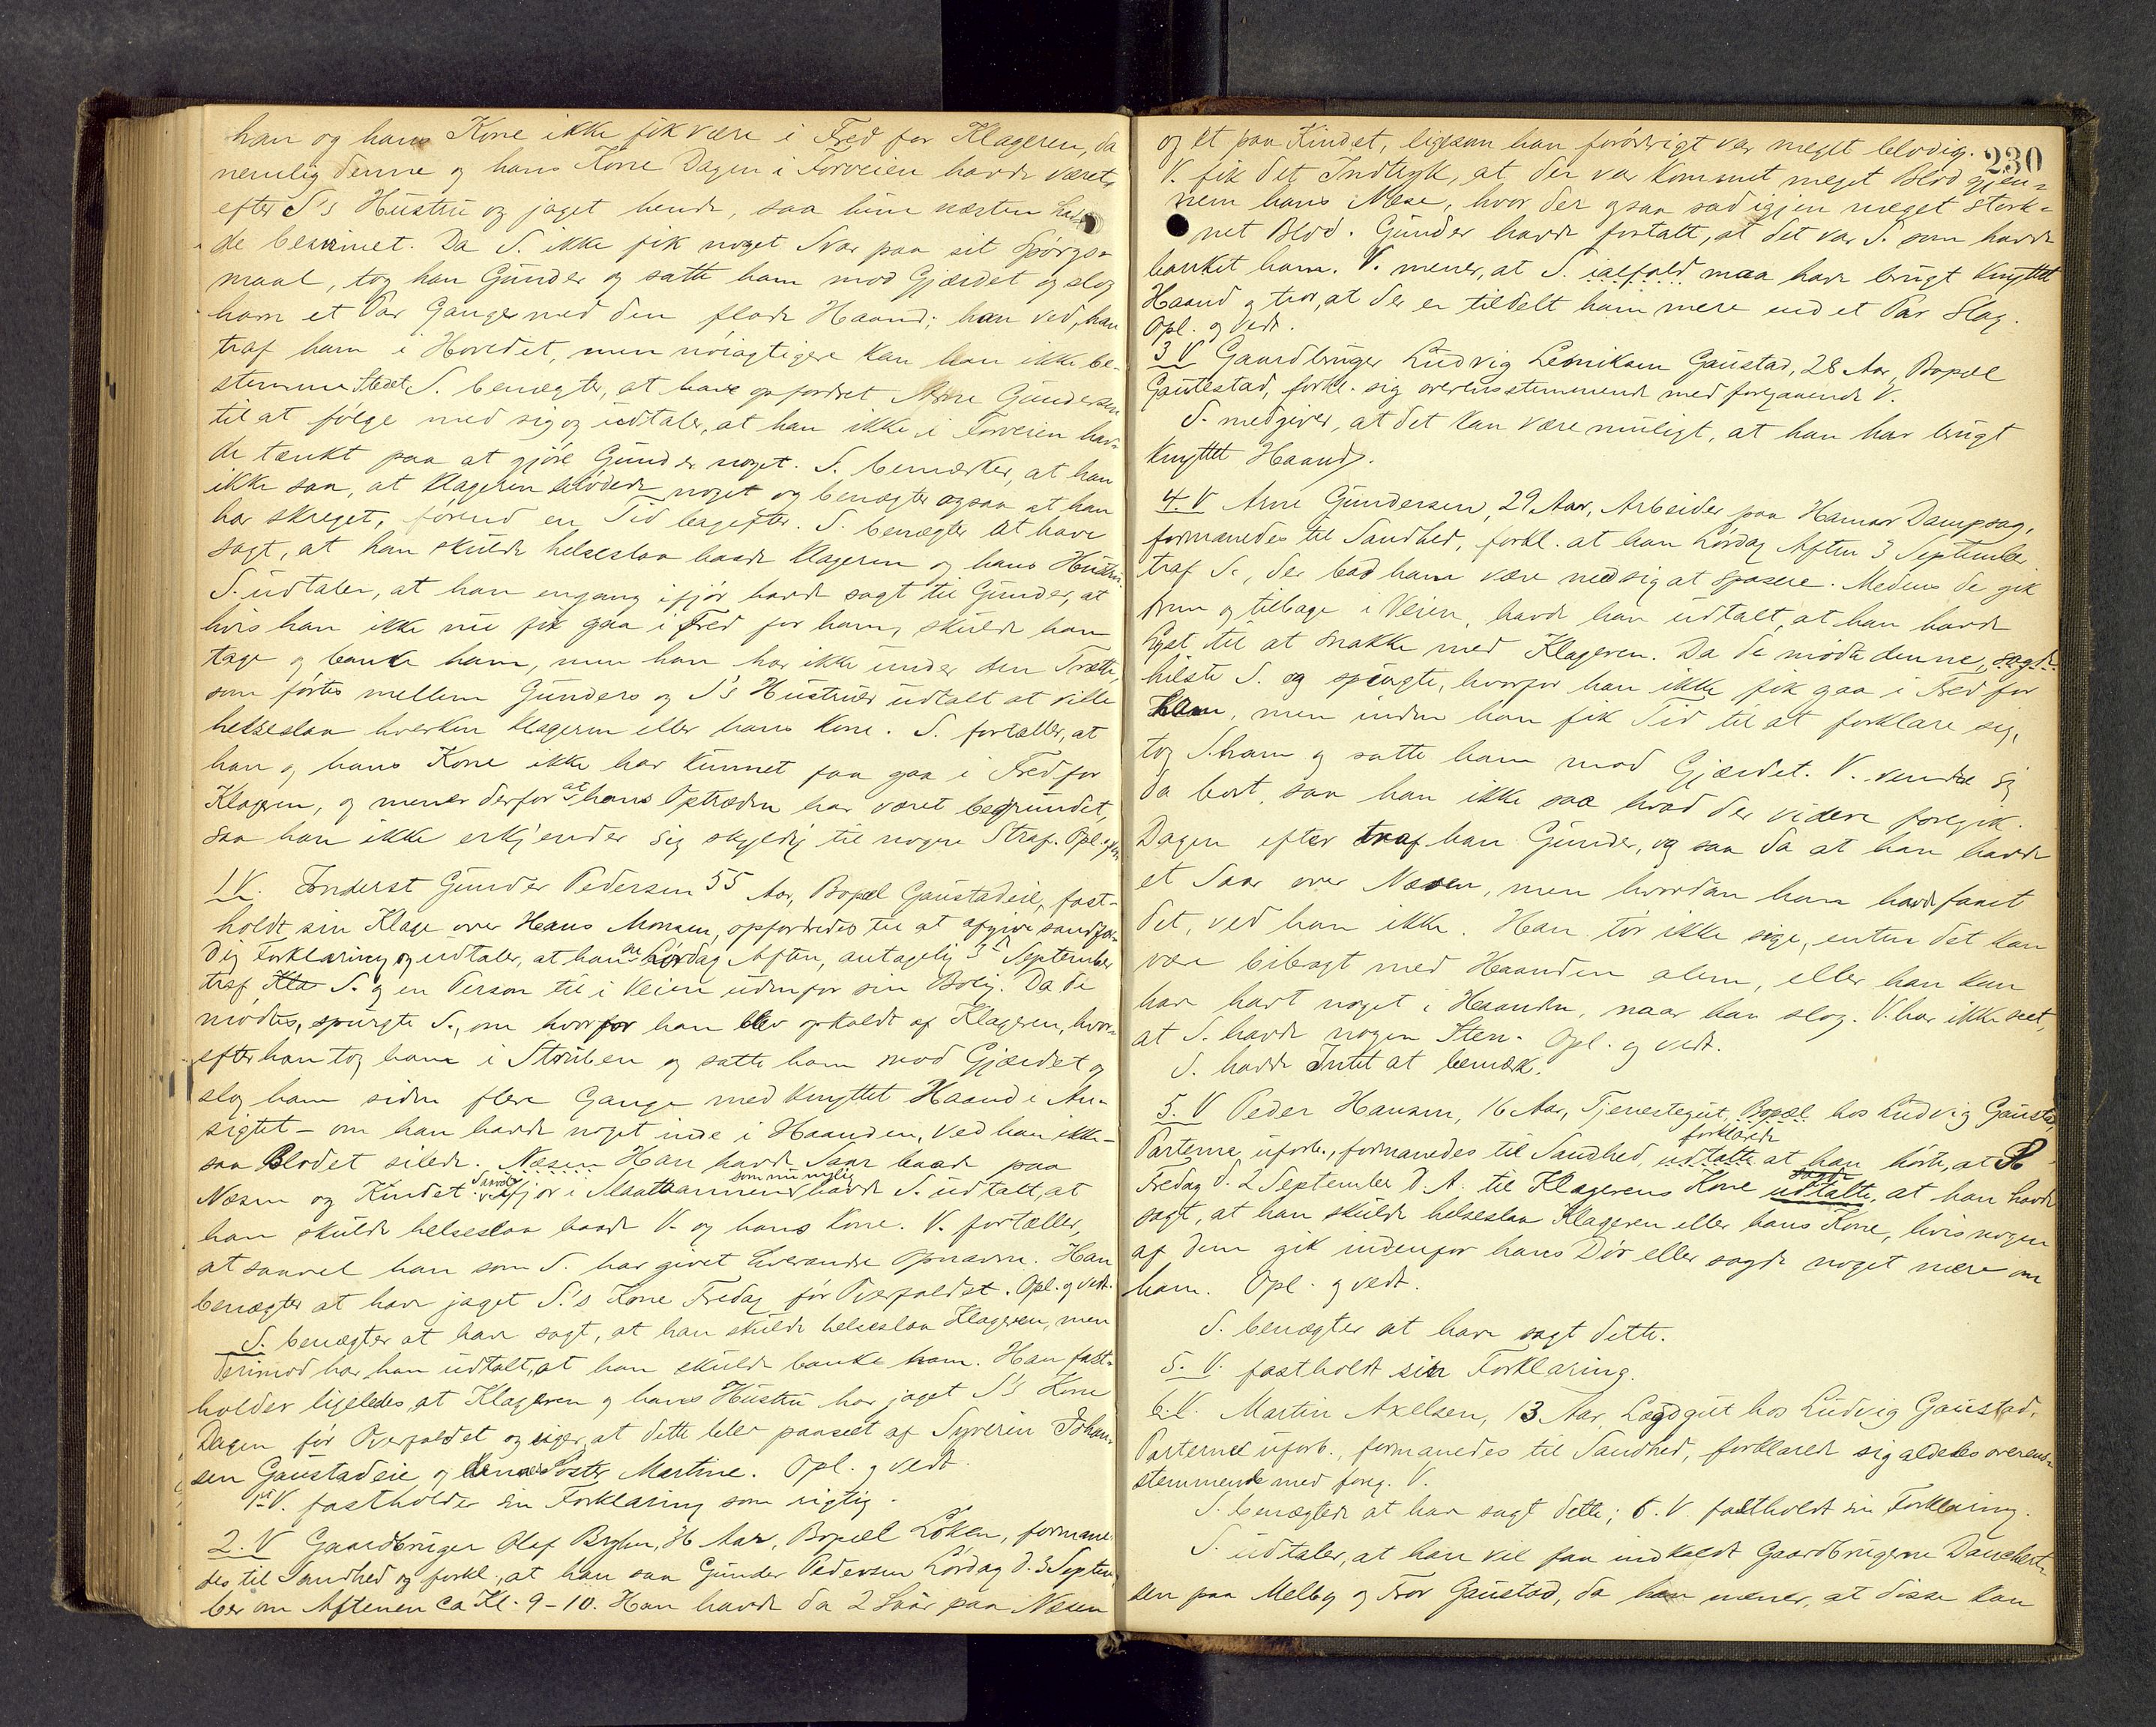 han og hans Kone ikke fik være i Fred for Klageren, da
nemlig denne og hans Kone Dagen i Forveien havde været
efter S's Hustru og jaget hende, saa hun næsten hav-
de besvimet. Da S. ikke fik noget Svar paa sit Spörgs-
maal, tog han Gunder og satte ham mod Gjærdet og slog
ham et Par Gange med den flade Haand; han ved, han
traf ham i Hovedet, men nöiagtigere kan han ikke be-
stemme Stedet. S. benægter, at have opfordret Arne Gundersen
til at fölge med sig og udtaler, at han ikke i Forveien hav-
de tænkt paa at gjöre Gunder noget. S. bemærker, at han
ikke saa, at Klageren blödede noget og benægter ogsaa at han
har skreget, förend en Tid bagefter. S. benægter at have
sagt, at han skulde helseslaa baade Klageren og hans Hustru.
S. udtaler, at han engang ifjör havde sagt til Gunder, at
hvis han ikke nu fik gaa i Fred for ham, skulde han
tage og banke ham, men han har ikke under den Trætte,
som förtes mellem Gunders og S's Hustruer udtalt at ville
helseslaa hverken Klageren eller hans Kone. S. fortæller, at
han og hans Kone ikke har kunnet faa gaa i Fred for
Klageren, og mener derfor at hans Optræden har været begrundet,
saa han ikke erkjender sig skyldig til nogen Straf. Opl. og vedt.
1 V. Inderst Gunder Pedersen 55 Aar, Bopæl Gaustadeie, fast-
holdt sin Klage over Hans Monsen, opfordredes til at afgive sandfær-
dig Forklaring og udtaler, at han en Lördag Aften, antagelig 3 September
traf Kla S. og en Person til i Veien udenfor sin Bolig. Da de
mödtes, spurgte S., om hvorfor han blev opholdt af Klageren, hvor-
efter han tog ham i Struben og satte ham mod Gjærdet og
slog ham siden flere Gange med knyttet Haand i An-
sigtet – om han havde noget inde i Haanden, ved han ikke –
saa Blodet silede. Næsen Han havde Saar baade paa
Næsen og Kindet. ifjor i Slaattannen som nu havde S. udtalt, at
han skulde helseslaa baade V. og hans Kone. V. fortæller,
at saavel han som S. har givet hverandre Opnavne. Han
benægter at have jaget S.'s Kone Fredag för Overfaldet. Opl. og vedt.
S. benægter at have sagt, at han skulde helseslaa Klageren, men
derimod har han udtalt, at han skulde banke ham. Han fast-
holder ligeledes, at Klageren og hans Hustru har jaget S's Kone
Dagen för Overfaldet og siger, at dette blev paaseet af Syverin Johan-
sen Gaustadeie og dennes Söster Martine. Opl. og vedt.
1ste V. fastholder sin Forklaring som rigtig.
2. V Gaardbruger Olaf Bryhn, 36 Aar, Bopæl Löken, formane-
des til Sandhed og forkl., at han saa Gunder Pedersen Lördag d. 3 Septem-
ber om Aftenen ca Kl. 9-10. Han havde da 2 Saar paa Næsen
230
og et paa Kindet, ligesom han forövrigt var meget blodig.
V. fik det Indtryk, at der var kommet meget Blod gjen-
nem hans Næse, hvor der ogsaa sad igjen meget störk-
net Blod. Gunder havde fortalt, at det var S. som havde
banket ham. V. mener, at S. ialfald maa have brugt knyttet
Haand og tror, at der er tildelt ham mere end et Par Slag.
Opl. og Vedt.
3 V Gaardbruger Ludvig Gaustad, 28 Aar, Bopæl
Gautestad, forkl. sig overensstemmende med foregaaende V.
S. medgiver, at det kan være muligt, at han har brugt
knyttet Haand.
4. V Arne Gundersen, 29 Aar, Arbeider paa Hamar Dampsag,
formanedes til Sandhed, forkl. at han Lördag Aften 3 September
traf S., der bad ham være med sig at spasere. Medens de gik
frem og tilbage i Veien, havde han udtalt, at han havde
Lyst til at snakke med Klageren. Da de mödte denne, sagde
hilste S. og spurgte, hvorfor han ikke fik gaa i Fred for
ham, men inden han fik Tid til at forklare sig,
tog S. ham og satte ham mod Gjærdet. V. vendte sig
da bort, saa han ikke saa hvad der videre foregik.
Dagen efter traf han Gunder, og saa da at han havde
et Saar over Næsen, men hvordan han havde faaet
det, ved han ikke. Han tör ikke sige, enten det kan
være bibragt med Haanden alene, eller han kan
have havt noget i Haanden, naar han slog. V. har ikke seet,
at S. havde nogen Sten. Opl. og vedt.
S. havde Intet at bemærk.
5. V Peder Hansen, 16 Aar, Tjenestegut, Bopæl hos Ludvig Gaustad,
Parterne uforb., formanedes til Sandhed, udtalte forklarede at han hörte, at S.
Fredag d. 2 September d. A. til Klagerens Kone udtalte sagde, at han havde
sagt, at han skulde helseslaa Klageren eller hans Kone, hvis nogen
af dem gik indenfor hans Dör eller sagde noget mere om
ham. Opl. og vedt.
S. benægter at have sagt dette.
5. V. fastholdt sin Forklaring.
6. V. Martin Axelsen, 13 Aar, Lægdgut hos Ludvig Gaustad.
Parterne uforb., formanedes til Sandhed, forklarede sig aldeles overens-
stemmende med foreg. V.
S. benægtede at have sagt dette; 6. V. fastholdt sin Forklaring.
S. udtaler, at han vil faa indkaldt Gaardbrugerne Danchert-
sen paa Melby og Tror Gaustad, da han mener, at disse kan